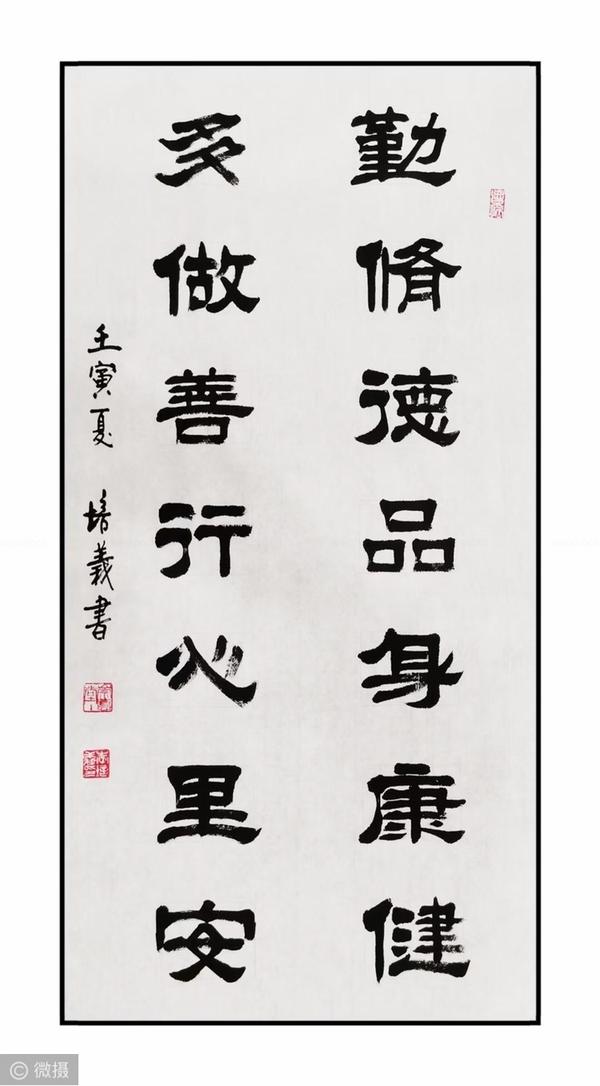 勤脩德品身康健
多做善行心里安
壬寅夏 培義書
© 微摄